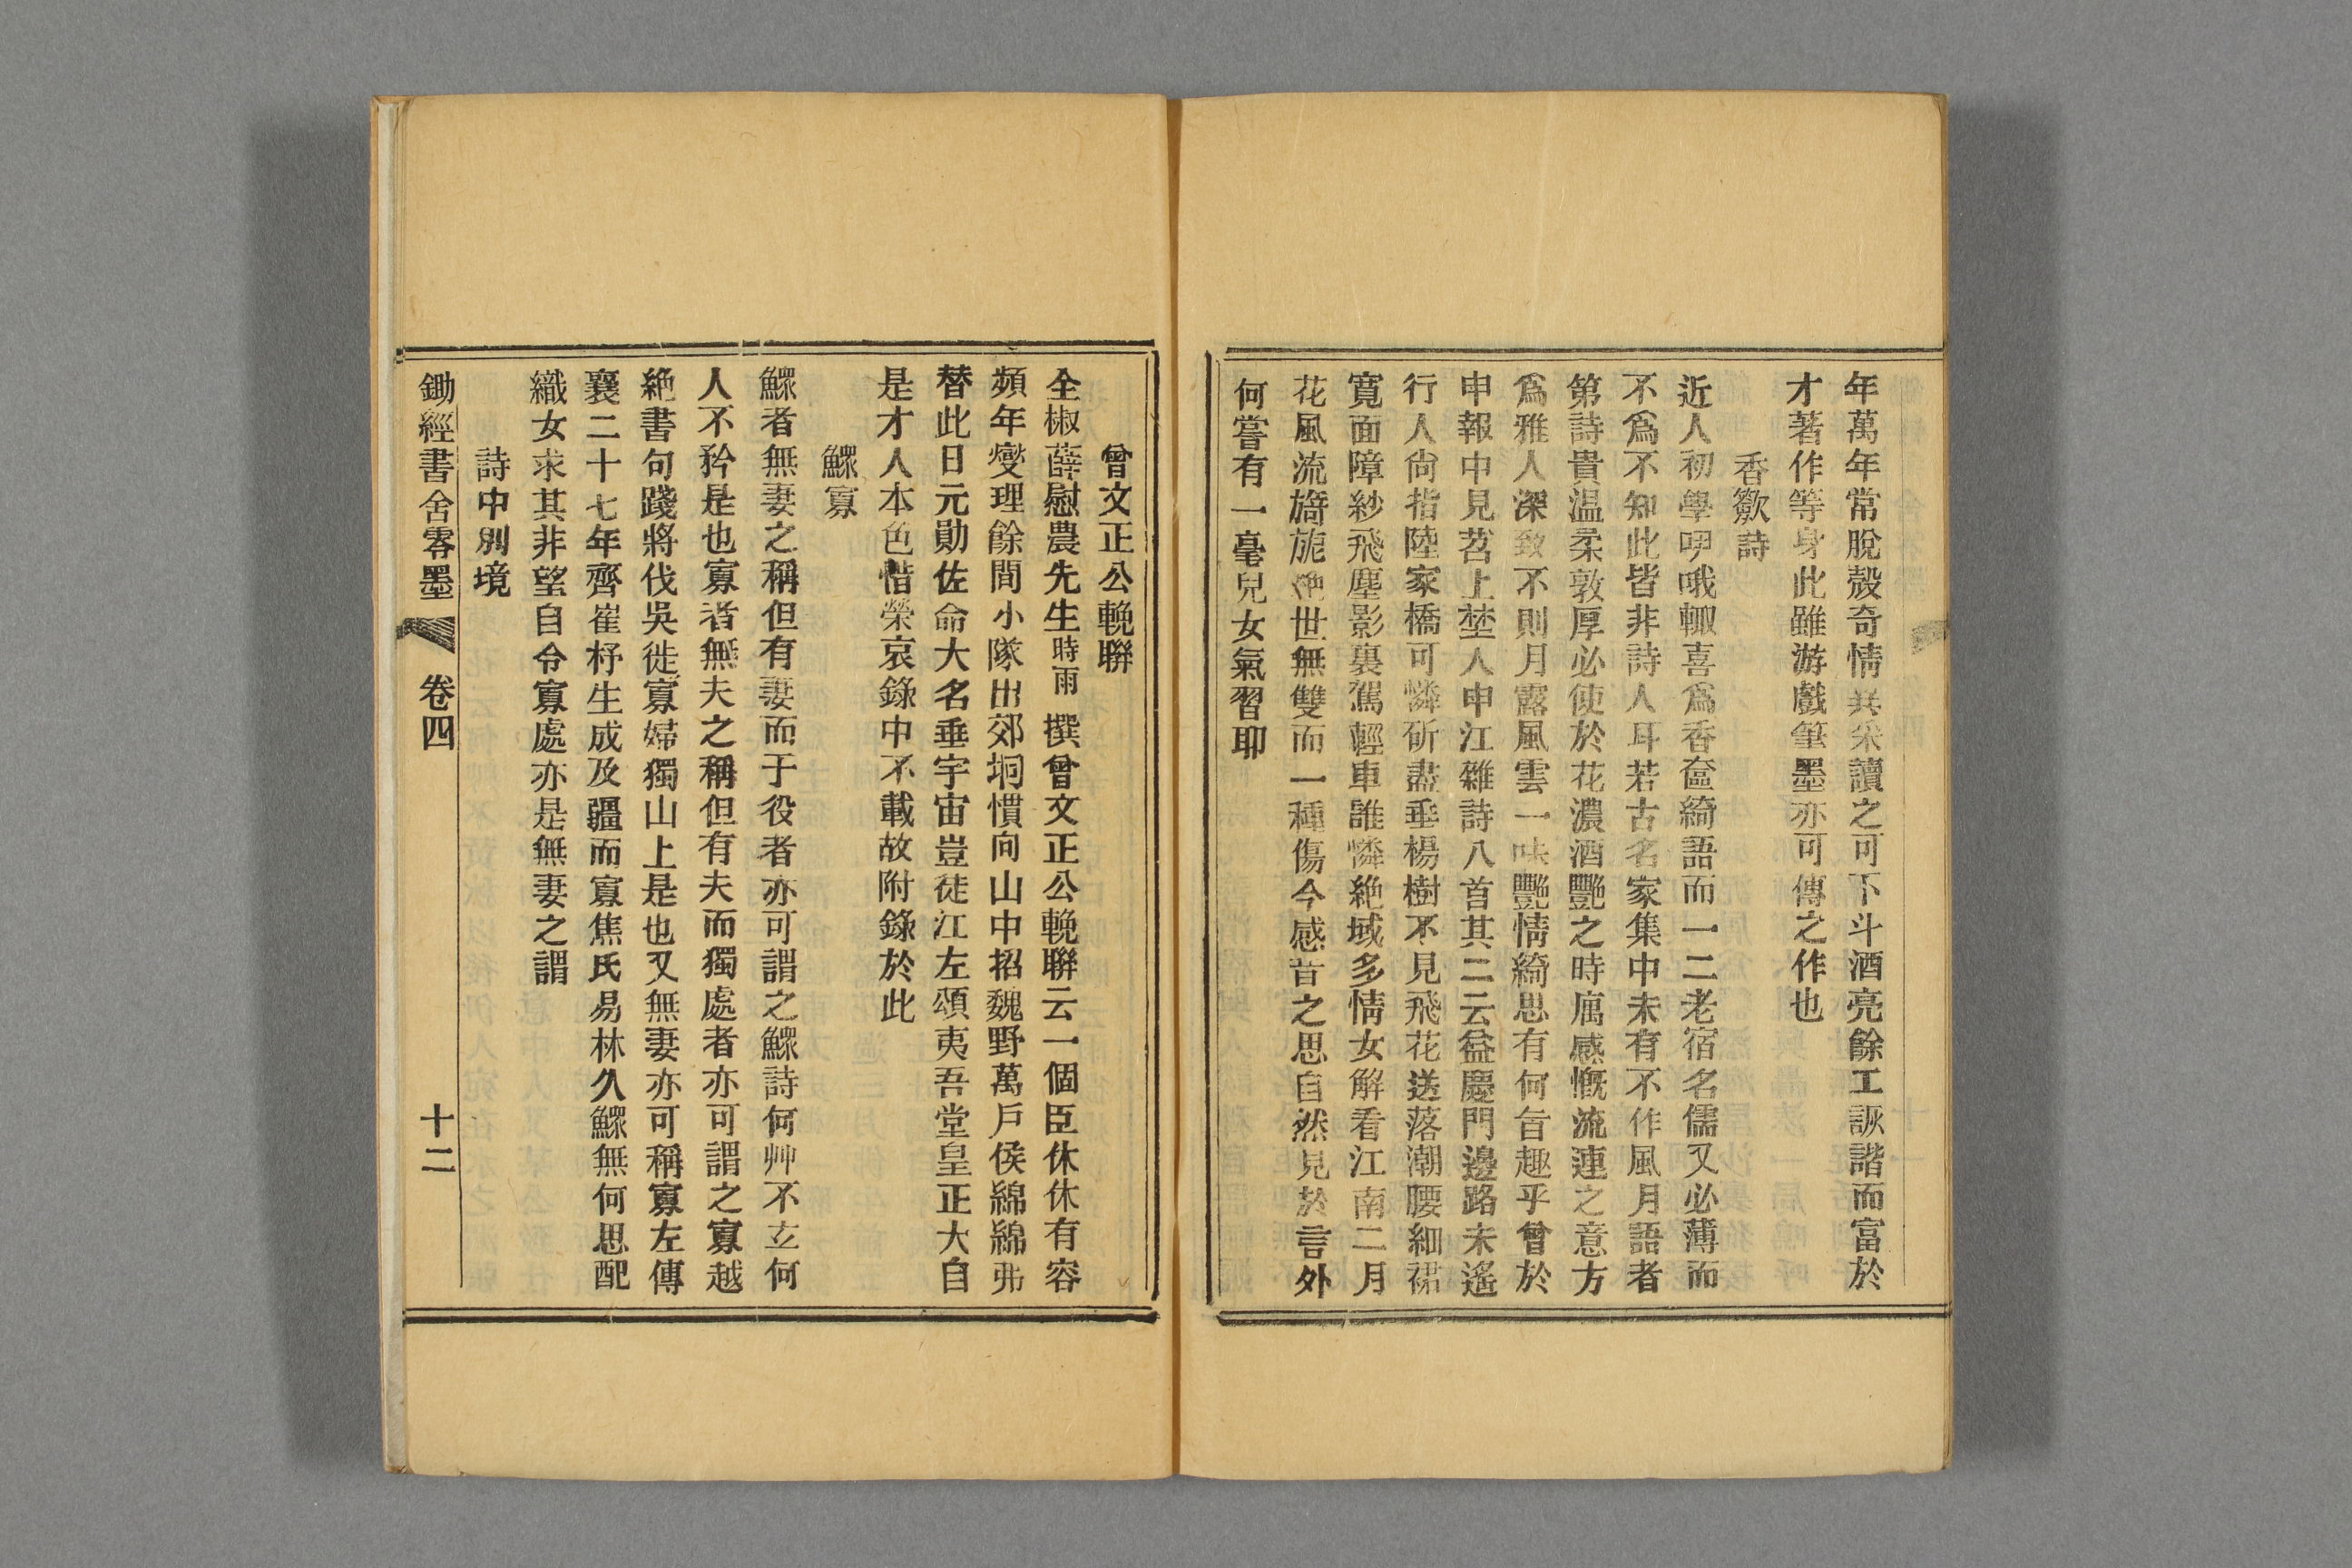 年萬年常脫殼奇情異采讀之可下斗酒亮餘工詼諧而富於
才著作等身此雖游戲筆墨亦可傳之作也
香籢詩
近人初學吚哦輙喜爲香奩綺語而一二老宿名儒又必薄而
不爲不知此皆非詩人耳若古名家集中未有不作風月語者
第詩貴温柔敦厚必使於花濃酒艷之時寓感慨流連之意方
爲雅人深致不則月露風雲一味艷情綺思有何旨趣乎曾於
申報中見苕上埜人申江雜詩八首其二云益慶門邊路未遙
行人尙指陸家橋可憐斫盡垂楊樹不見飛花送落潮腰細裙
寬面障紗飛塵影裏駕輕車誰憐絶域多情女解看江南二月
花風流旖旎絶世無雙而一種傷今感昔之思自然見於言外
何嘗有一毫兒女氣習耶
曾文正公輓聯
全椒薛慰農先生時雨撰曾文正公輓聯云一個臣休休有容
頻年燮理餘間小隊出郊坰慣向山中招魏野萬戶侯綿綿弗
替此日元勛佐命大名垂宇宙豈徒江左頌夷吾堂皇正大自
是才人本色惜榮哀錄中不載故附錄於此
鰥寡
鰥者無妻之稱但有妻而于役者亦可謂之鰥詩何艸不玄何
人不矜是也寡者無夫之稱但有夫而獨處者亦可謂之寡越
絶書句踐將伐吳徙寡婦獨山上是也又無妻亦可稱寡左傳
襄二十七年齊崔杼生成及疆而寡焦氏易林久鰥無何思配
織女求其非望自令寡處亦是無妻之謂
詩中別境
鋤經書舍零墨 卷四 十二